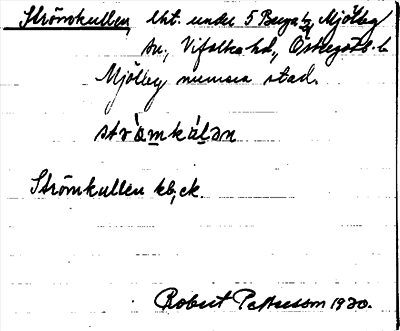 Strömkullen, lht. under 5 Bugatg, Mjölby
sn, Vifolka hd, Östergötl. l.
Mjölby numera stad.
strö̀mkúlan
Strömkullen kb, ek.
Robert Pettersson 1920.